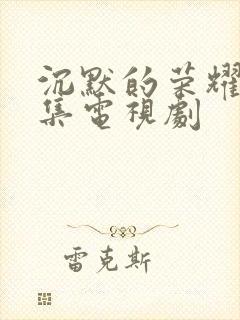 沉默的荣耀
集電視劇
雷克斯